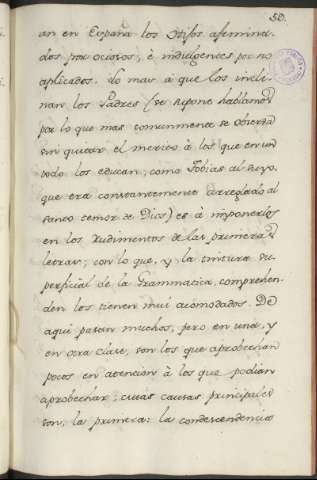 50.
an en España los Hijos afemina-
dos por ociosos, è indulgentes por no
aplicados. Lo mas à que los incli-
nan los Padres (se supone hablamos
por lo que mas comunmente se observa
sin quitar el merito à los que en un
todo los educan, como Tobias al suyo,
que era constantemente arreglado al
santo temor de Dios) es à imponerlos
en los rudimentos de las primeras
letras; con lo que, y la tintura su-
perficial de la Grammatica, comprehen-
den los tienen mui acomodados. De
aqui pasan muchos, pero en una, y
en otra clase, son los que aprobechan
pocos en atencion à los que podian
aprobechar; cuias causas principales
son, la primera: la condescendencia